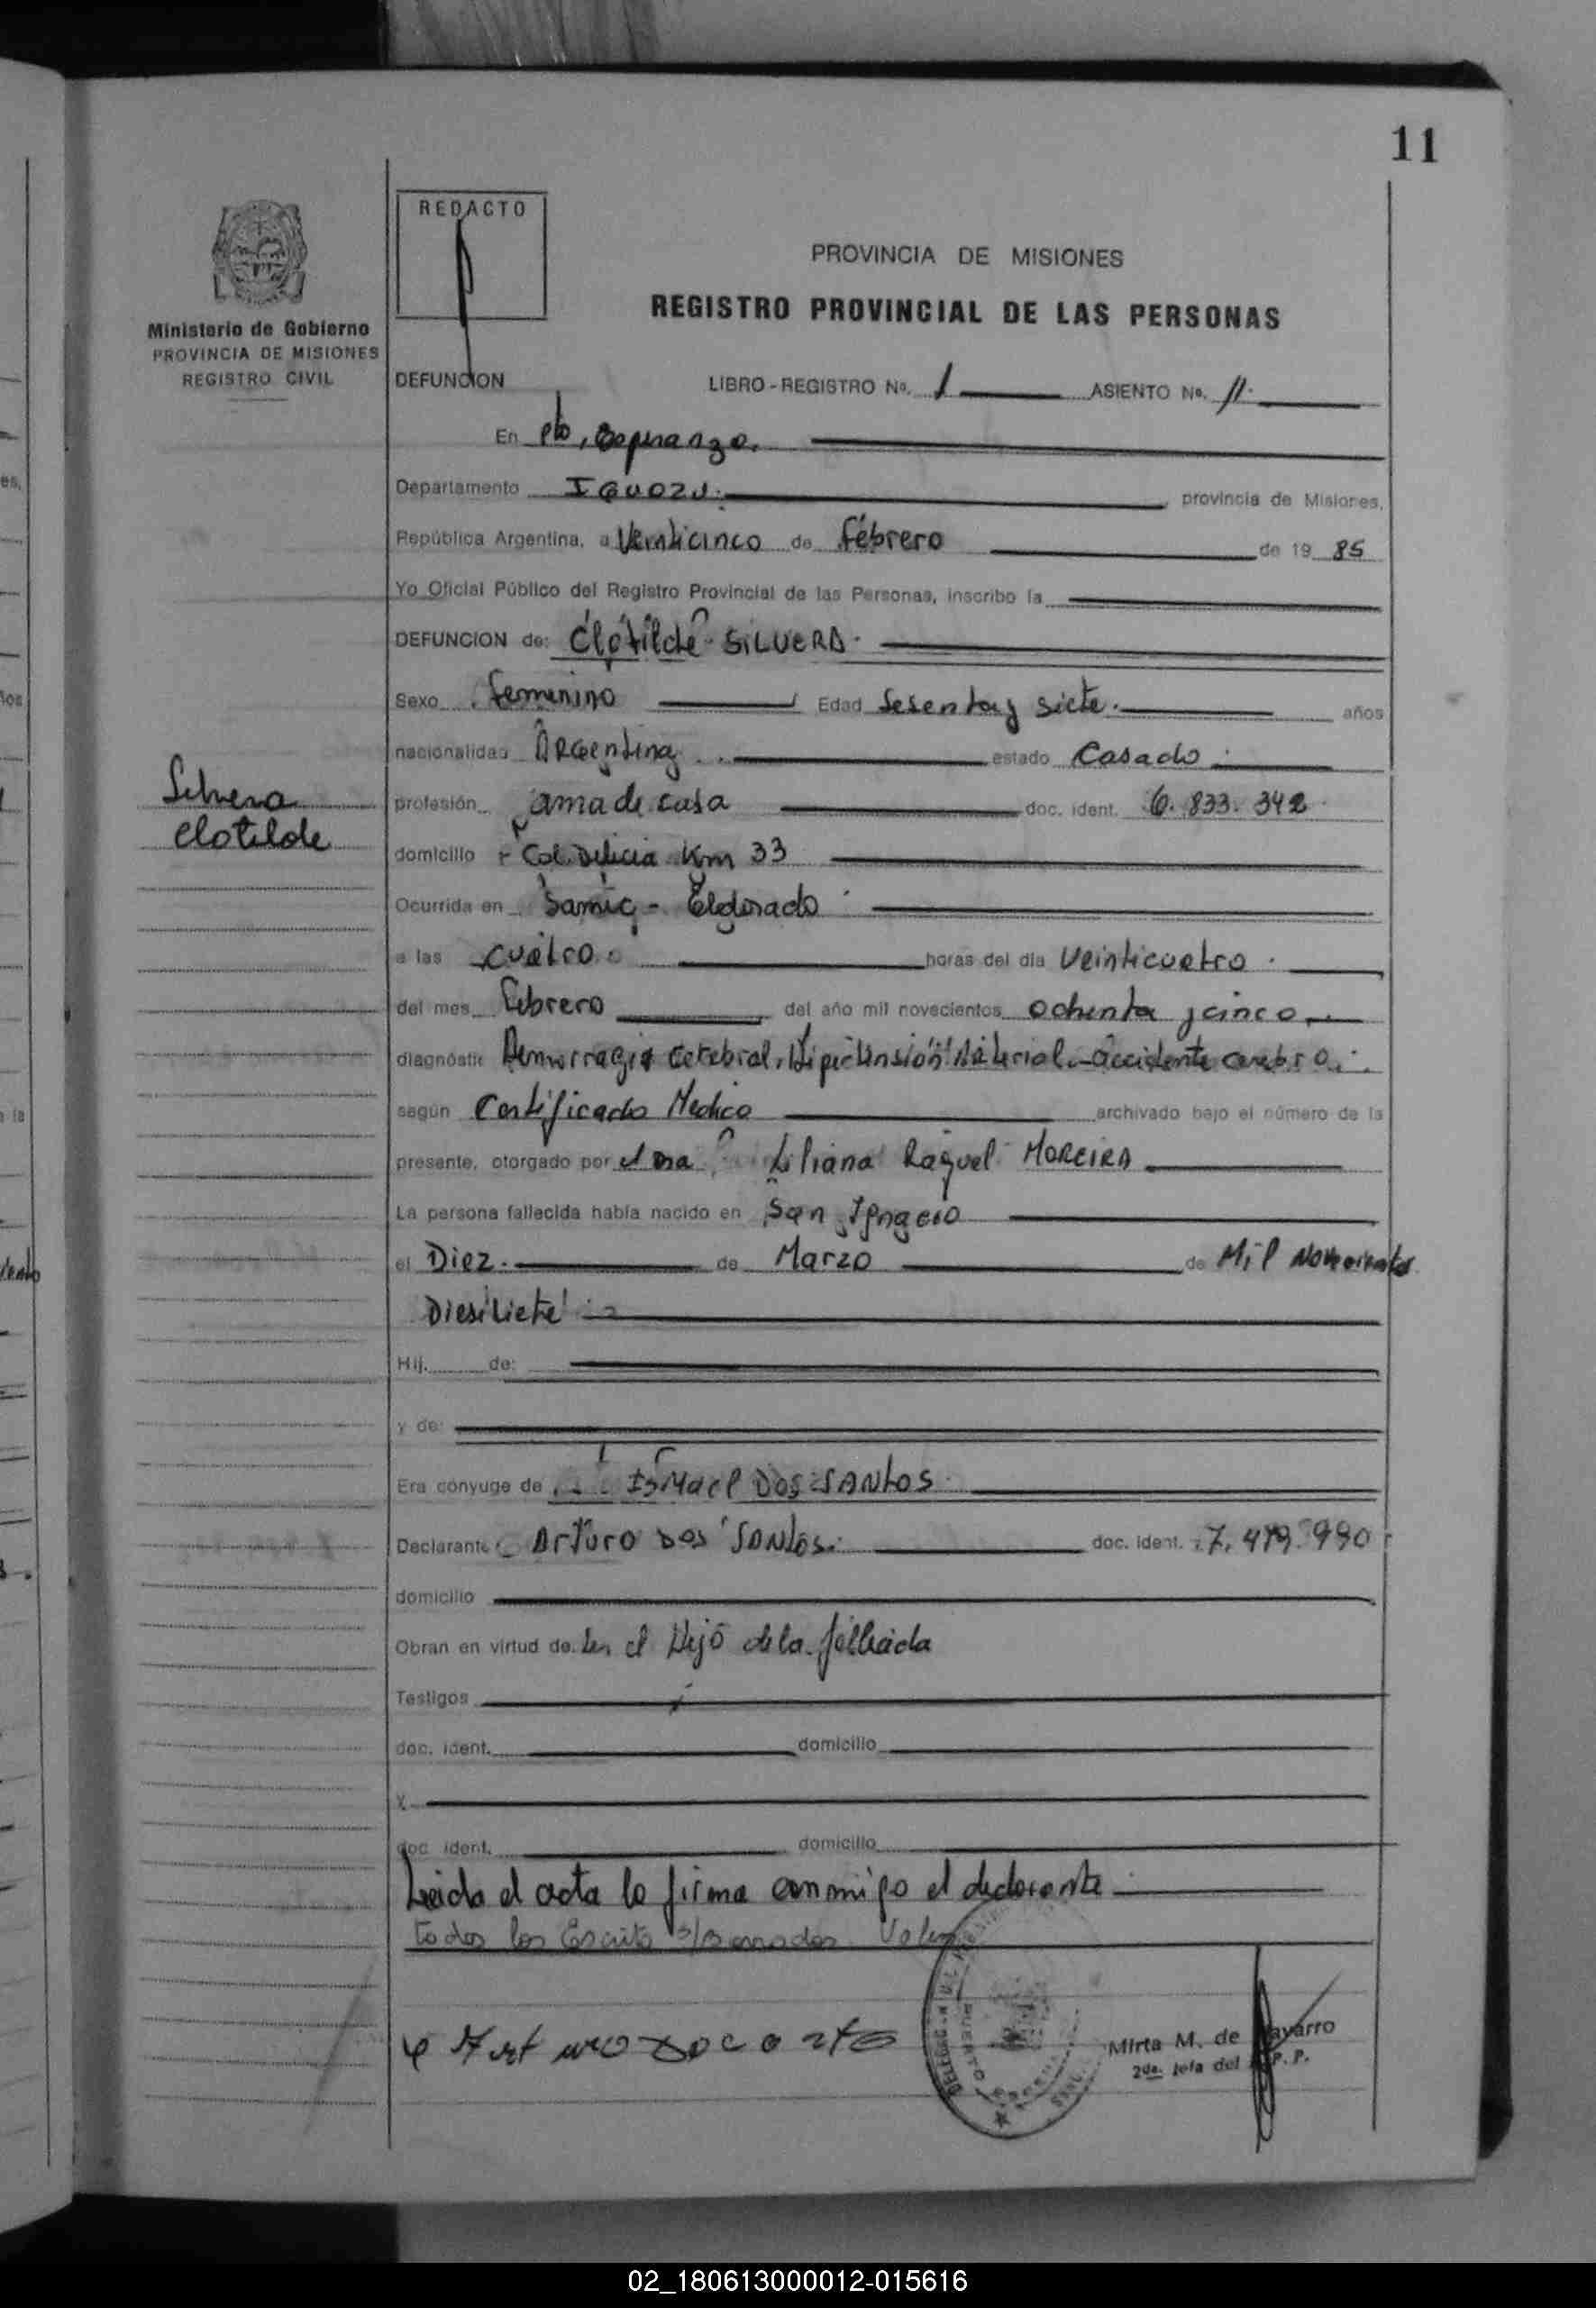 11
REDACTO
PROVINCIA DE MISIONES
REGISTRO PROVINCIAL DE LAS PERSONAS
Ministerio de Gobierno
PROVINCIA DE MISIONES
REGISTRO CIVIL
DEFUNCION LIBRO-REGISTRO Nº. 1 ASIENTO Nº. 11.
En Pto, Esperanza.
Departamento IGUAZU. provincia de Misiones,
República Argentina, a Veinticinco de febrero de 19 85
Yo Oficial Público del Registro Provincial de las Personas, inscribo la
DEFUNCION de: Clotilde SILVERA.
Sexo femenino Edad Sesenta y siete. años
nacionalidad Argentina estado Casado
Silvera
Clotilde
profesión ama de casa doc. ident. 6.833.342
domicilio Col. Delicia Km 33
Ocurrida en Samic - Eldorado
a las cuatro horas del día Veinticuatro.
del mes Febrero del año mil novecientos ochenta y cinco
diagnóstic Hemorragia Cerebral, Hipertensión Arterial - accidente cerebro.
según Certificado Medico archivado bajo el número de la
presente, otorgado por el Dra Liliana Raquel MOREIRA
La persona fallecida había nacido en San Ignacio
el Diez. de Marzo de Mil Novecientos
Diesiciete
Hij. de:
y de:
Era cónyuge de ISMael DOS SANtOS.
Declarante Arturo Dos SANtos. doc. ident. 7.479.990
domicilio
Obran en virtud de Ser el Hijo de la fallecida
Testigos
doc. ident. domicilio
y
doc. ident. domicilio
Leida el acta la firma conmigo el declarante
todos los Escrito s/Borrados Valen
Mirta M. de Navarro
2da. Jefa del R.P.P.
02_180613000012-015616